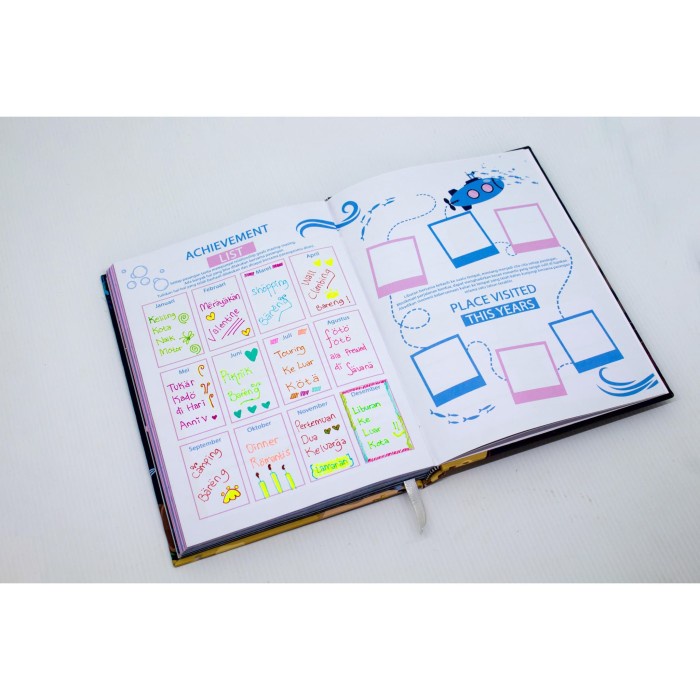 ACHIEVEMENT
LIST
Januari
Keliling
Kota
Naik
Motor
Februari
Merayakan
Valentine
Maret
shopping
Bareng
April
Wall
Climbing
Bareng!
Mei
Tukar
Kado
di Hari
Anniv
Juni
Piknik
Bareng
Juli
Touring
Ke Luar
Kota
Agustus
foto
foto
ala Prewed
di
Savana
September
Camping
Bareng
Oktober
Dinner
Romantis
November
Pertemuan
Dua
Keluarga
Lamaran
Desember
Liburan
Ke
Luar
Kota
PLACE VISITED
THIS YEARS